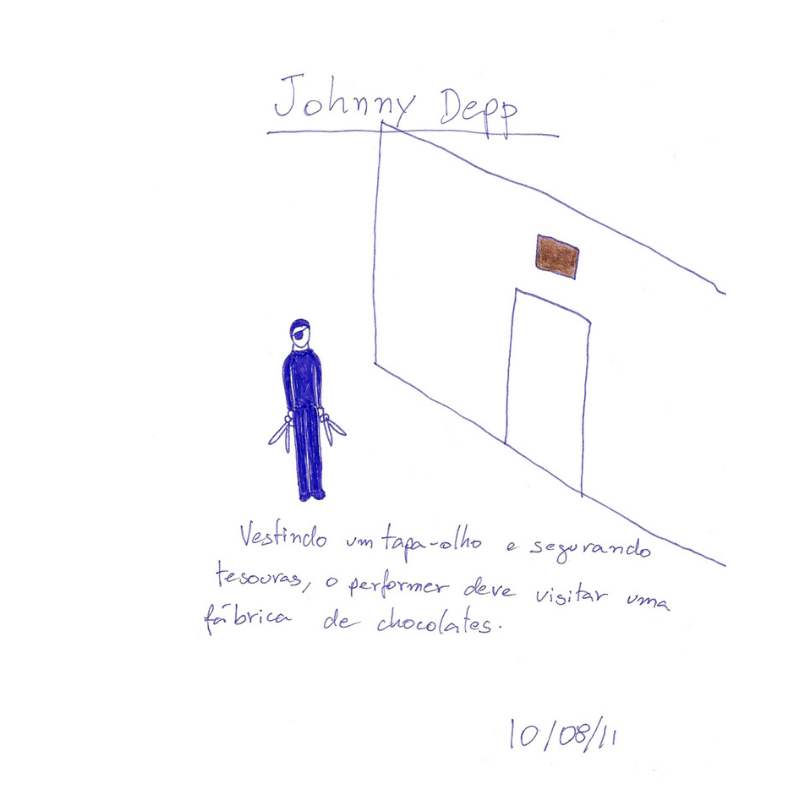 Johnny Depp
Vestindo um tapa-olho e segurando
tesouras, o performer deve visitar uma
fábrica de chocolates.
10/08/11